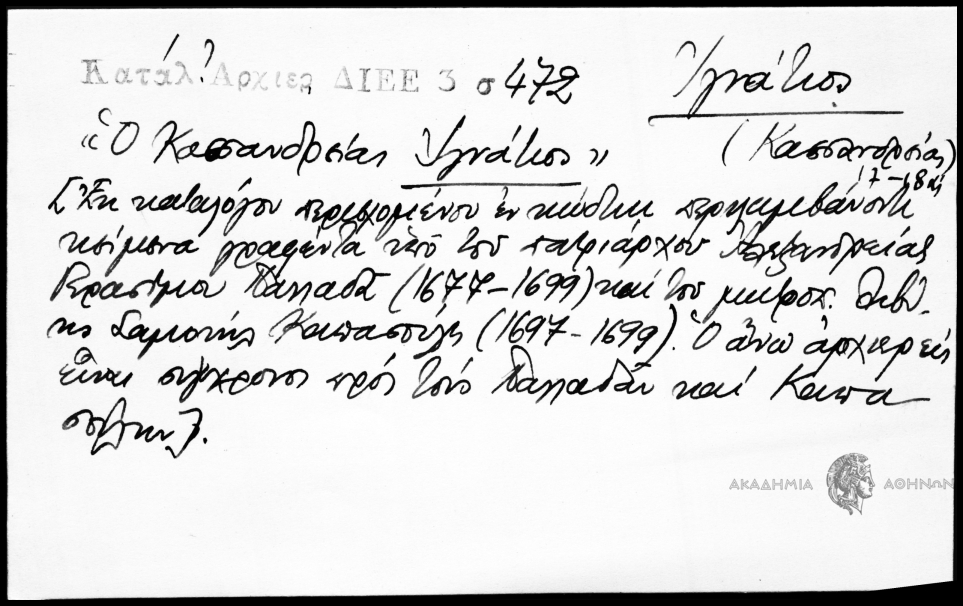 Κατάλ. Ἀρχιερ ΔΙΕΕ 3 σ 472
Ἰγνάτιος
«Ὁ Κασσανδρείας Ἰγνάτιος»
(Κασσανδρείας)
17-18 αἰ
[Ἐκ καταλόγου περιεχομένου ἐν κώδικι περιλαμβάνοντι
κείμενα γραφέντα ὑπό τοῦ πατριάρχου Ἀλεξανδρείας
Γερασίμου Παλλαδᾶ (1677-1699) καί τοῦ μητροπ. Λιβύ-
ης Σαμουήλ Καπασούλη (1697-1699). Ὁ ἄνω ἀρχιερεύς
εἶναι σύγχρονος πρός τούς Παλλαδᾶν καί Καπα
σούλην].
ΑΚΑΔΗΜΙΑ ΑΘΗΝΩΝ